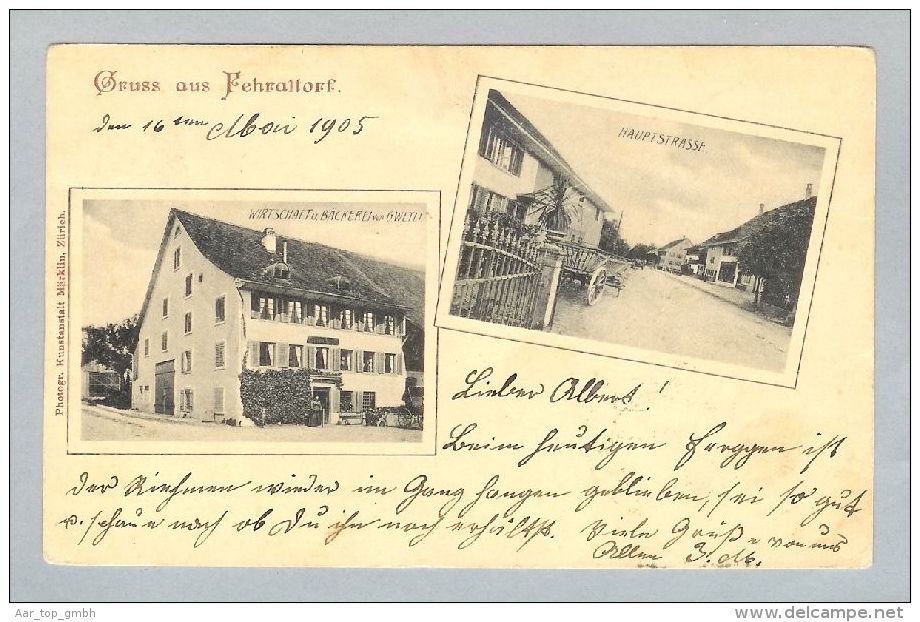 Gruss aus Fehraltorf.
den 16ten Mai 1905
HAUPTSTRASSE
WIRTSCHAFT U. BÄCKEREI VON
Photogr. Kunstanstalt Märklin, Zürich.
Lieber Albert!
Beim heutigen ist
der Riehmen wieder im Gang hangen geblieben, sei so gut
u. schaue nach ob Du ihn noch erhältst. Viele Grüße von uns
Allen
Aar_top_gmbh
www.delcampe.net